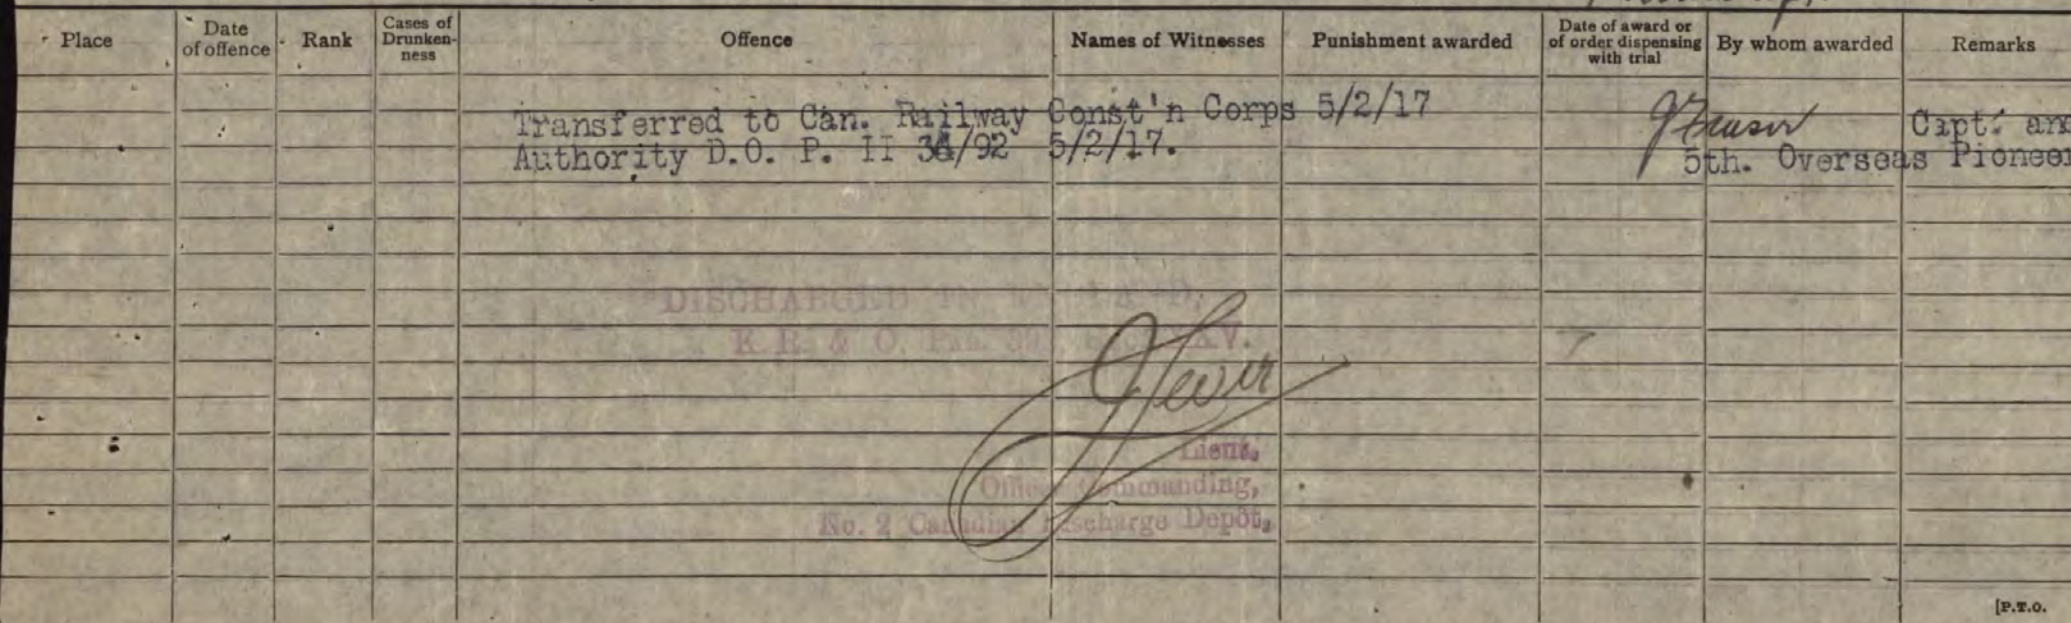 Place Date of offence Rank Cases of Drunken-ness Offence Names of Witnesses Punishment awarded Date of award or of order dispensing with trial By whom awarded Remarks
Transferred to Can. Railway Const'n Corps 5/2/17 Capt. and
Authority D.O. P. II /92 5/2/17. 5th. Overseas Pioneer
DISCHARGED IN
K.R. & O. XV.
Lieut.
Officer Commanding,
No. 2 Canadian Discharge Depôt,
[P.T.O.